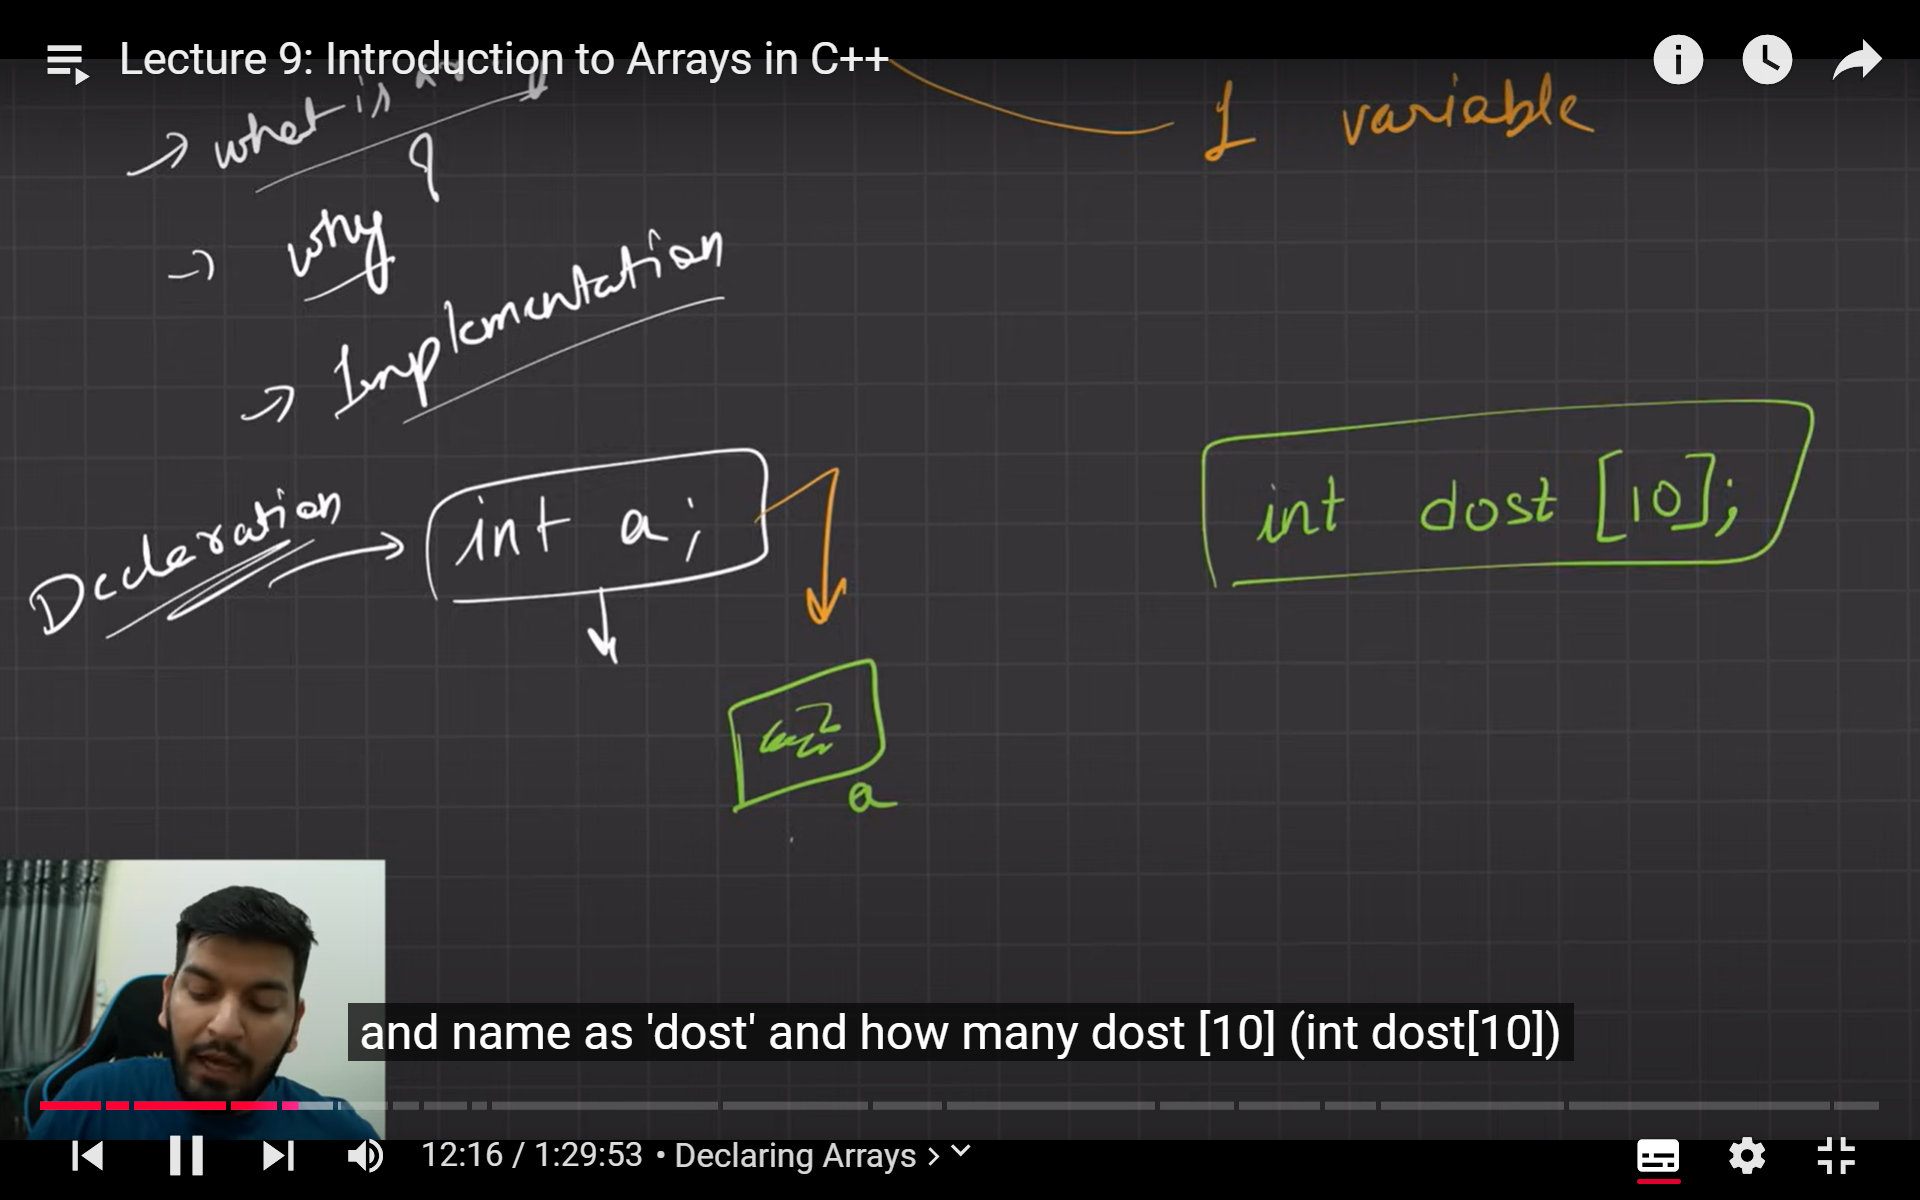 Lecture 9: Introduction to Arrays in C++
→ what is
?
1 variable
→ why
→ Implementation
Decleration → int a;
int dost [10];
a
and name as 'dost' and how many dost [10] (int dost[10])
12:16 / 1:29:53 • Declaring Arrays >